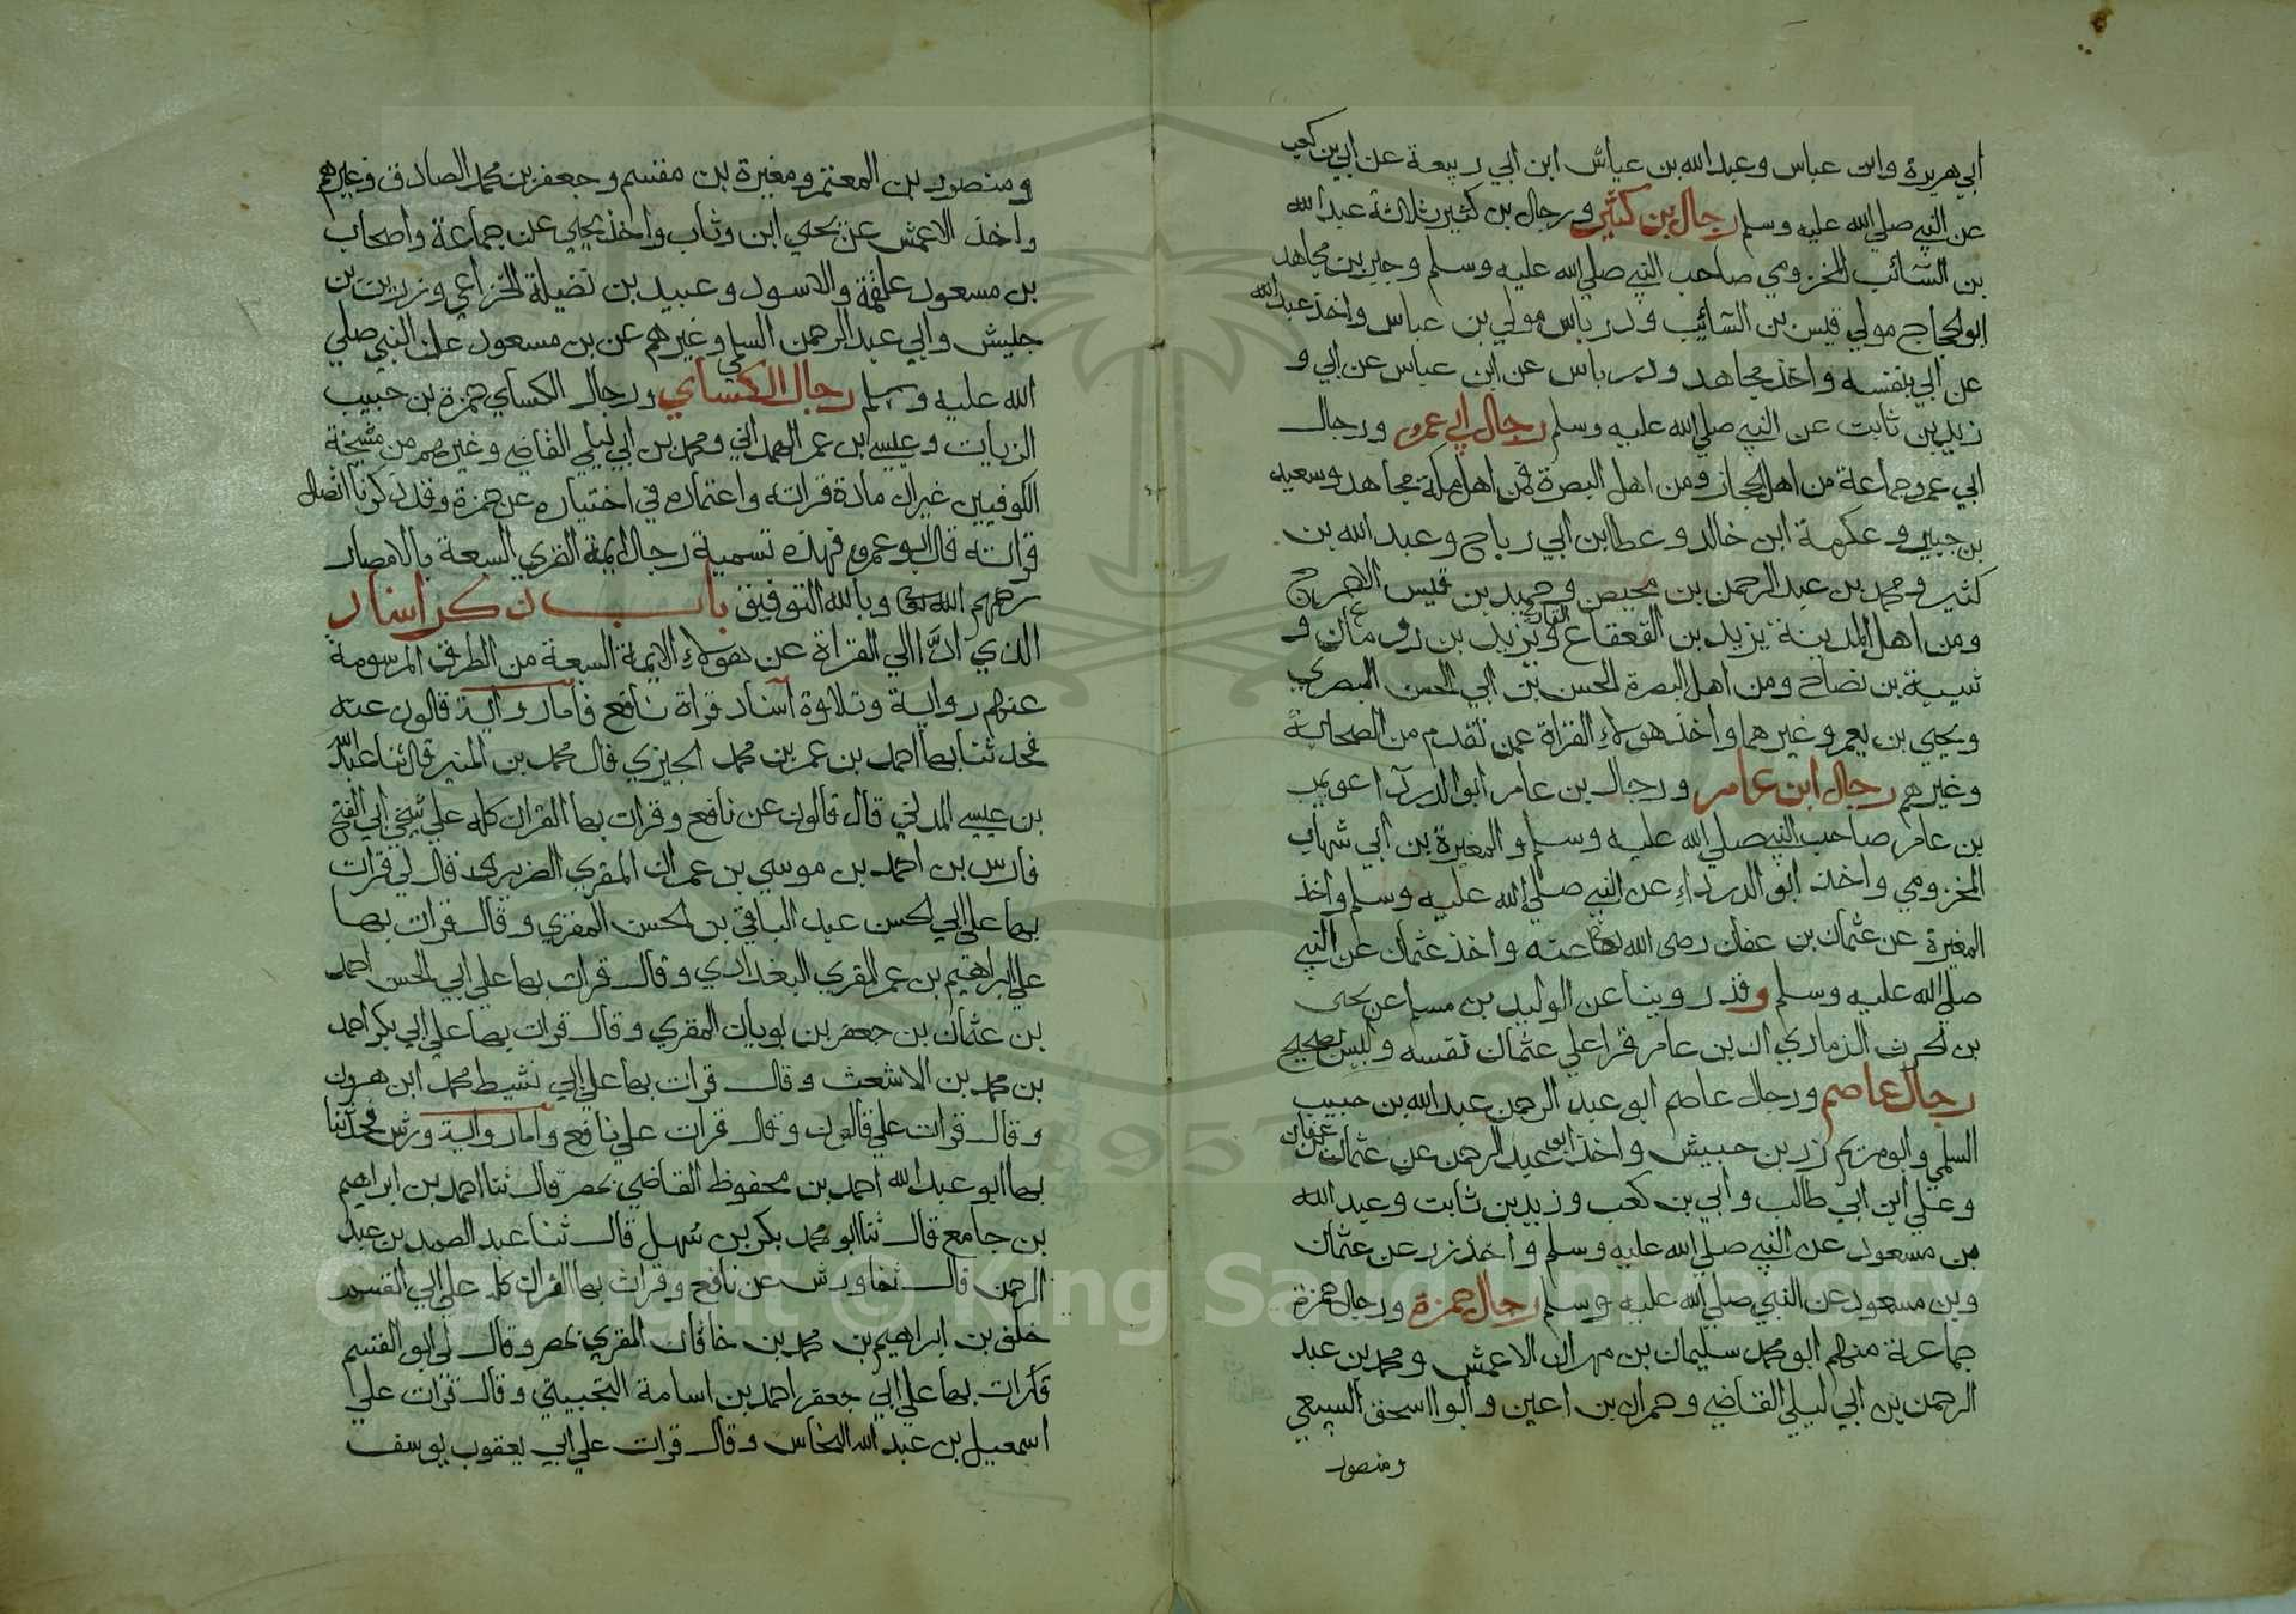 ابي هريرة وابن عباس وعبد الله بن عياش ابن ابي ربيعة عن ابي بن كعب
عن النبي صلي الله عليه وسلم رجال بن كثير ورجال بن كثير ثلاثة عبد الله
بن السائب المخزومي صاحب النبي صلي الله عليه وسلم وجبر بن مجاهد
ابو الحجاج مولي قيس بن السائب ودرباس مولي بن عباس واخذ عبد الله
عن ابي بنفسه واخذ مجاهد ودرباس عن ابن عباس عن ابي و
زيد بن ثابت عن النبي صلي الله عليه وسلم رجال ابي عمرو ورجال
ابي عمرو جماعة من اهل الحجاز ومن اهل البصرة فمن اهل مكة مجاهد وسعيد
بن جبير وعكرمة ابن خالد وعطا ابن ابي رباح وعبد الله بن
كثير ومحمد بن عبد الرحمن بن محيصن وحميد بن قيس الاعرج
ومن اهل المدينة يزيد بن القعقاع القاري ويزيد بن رومان و
شيبة بن نصاح ومن اهل البصرة الحسن بن ابي الحسن البصري
ويحيي بن يعمر وغيرهما واخذ هولاء القراة عمن تقدم من الصحابة
وغيرهم رجال ابن عامر ورجال بن عامر ابو الدردآ عويمر
بن عامر صاحب النبي صلي الله عليه وسلم والمغيرة بن ابي شهاب
المخزومي واخذ ابو الدرداء عن النبي صلي الله عليه وسلم واخذ
المغيرة عن عثمان بن عفان رضى الله عنه واخذ عثمان عن النبي
صلي الله عليه وسلم وقد روينا عن الوليد بن مسلم عن يحى
بن الحرث الزماري ان بن عامر قرا علي عثمان نفسه وليس بصحيح
رجال عاصم ورجال عاصم ابو عبد الرحمن عبد الله بن حبيب
السلمي وابو مريم زر بن حبيش واخذ ابو عبد الرحمن عن عثمان بن عفان
وعلي ابن ابي طالب وابي بن كعب وزيد بن ثابت وعبد الله
بن مسعود عن النبي صلي الله عليه وسلم واخذ زر عن عثمان
وبن مسعود عن النبي صلي الله عليه وسلم رجال حمزة ورجال حمزة
جماعة منهم ابو محمد سليمان بن مهران الاعمش ومحمد بن عبد
الرحمن بن ابي ليلي القاضي وحمران بن اعين وابو ااسحق السبيعي
ومنصور
ومنصور بن المعتمر ومغيرة بن مقسم وجعفر بن محمد الصادق وغيرهم
واخذ الاعمش عن يحيي ابن وثاب واخذ يحيي عن جماعة واصحاب
بن مسعود علقمة والاسود وعبيد بن نضيلة الخزاعي وزر بن
جليش وابي عبد الرحمن السلمي وغيرهم عن بن مسعود عن النبي صلي
الله عليه وسلم رجال الكساي ورجال الكساي حمزة بن حبيب
الزيات وعيسي ابن عمر الهمداني ومحمد بن ابي ليلي القاضي وغيرهم من مشيخة
الكوفيين غير ان مادة قراته واعتماده في اختياره عن حمزة وقد ذكرنا اتصال
قراته قال ابو عمرو فهذه تسمية رجال ايمة القري السعة بالامصار
رحمهم الله تعالى وبالله التوفيق باب ذكر اسناد
الذي ادَّا الي القراة عن هولاء الايمة السبعة من الطرق المرسومة
عنهم رواية وتلاوة اسناد قراة نافع فاما رواية قالون عنه
فحدثنا بها احمد بن عمر بن محمد الجيزي قال محمد بن المنير قال ثنا عبد الله
بن عيسي المدني قال قالون عن نافع وقرات بها القران كله علي شيخي ابي الفتح
فارس بن احمد بن موسي بن عمران المقري الضرير قال لي قرات
بها علي ابي الحسن عبد الباقي بن الحسن المقري وقال قرات بها
علي ابراهيم بن عمر المقري البغدادي وقال قرات بها علي ابي الحسن احمد
بن عثمان بن جعفر بن بويان المقري وقال قرات بها علي ابي بكر احمد
بن محمد بن الاشعث وقال قرات بها علي ابي نشيط محمد ابن هرون
وقال قرات علي قالون وقال قرات علي نافع واما رواية ورش فحدثنا
بها ابو عبد الله احمد بن محفوظ القاضي بمصر قال ثنا احمد بن ابراهيم
بن جامع قال ثنا ابو محمد بكر بن سهل قال ثنا عبد الصمد بن عبد
الرحمن قال ثنا ورش عن نافع وقرات بها القران كله علي ابي القسم
خلف بن ابراهيم بن محمد بن خاقان المقري بمصر وقال لي ابو القسم
قرات بها علي ابي جعفر احمد بن اسامة التجيبي وقال قرات علي
اسمعيل بن عبد الله النحاس وقال قرات علي ابي يعقوب يوسف
1957
Copyright © King Saud University